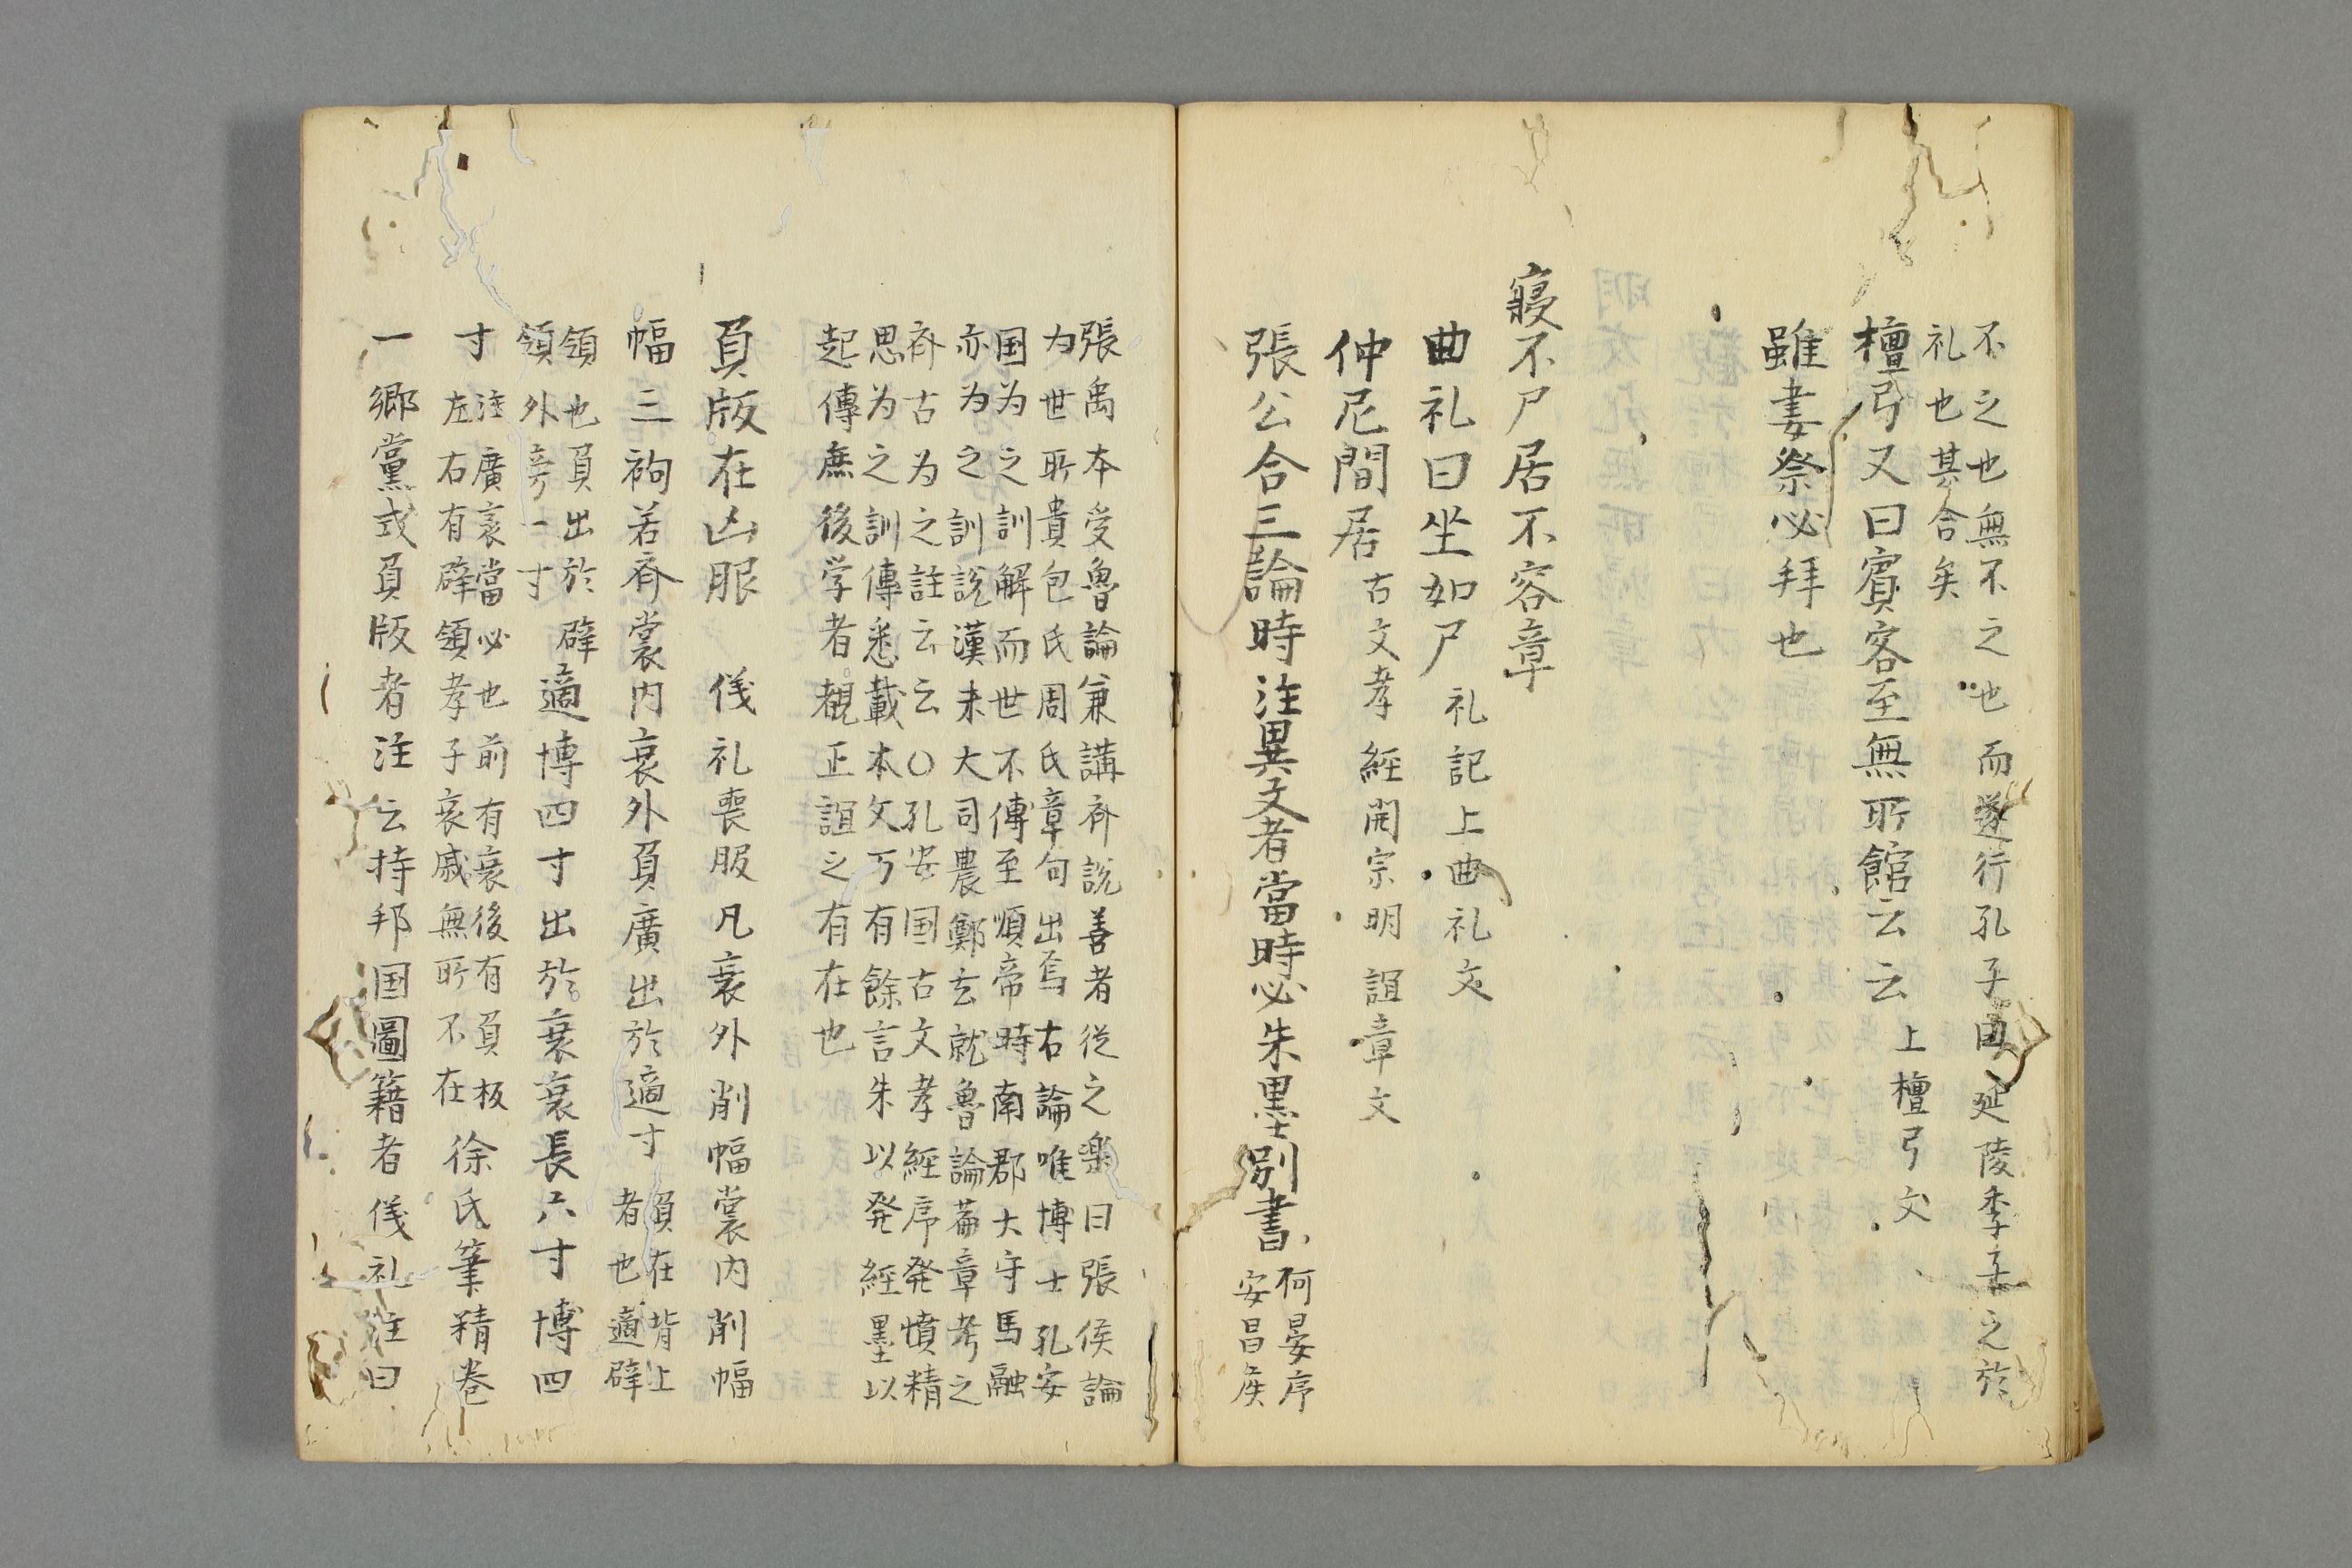 不之也無不之也而遂行孔子曰延陵季子之於
礼也其合矣
檀弓又曰賓客至無所館云云 上檀弓文
雖妻祭必拜也
寢不尸居不容章
曲礼曰坐如尸 礼記上曲礼文
仲尼間居 古文孝經開宗明誼章文
張公合三論時注異文者當時必朱墨別書 何晏序
安昌侯
張禹本受魯論兼講齐説善者従之楽曰張侯論
为世所貴包氏周氏章句出焉右論唯博士孔安
国为之訓解而世不傳至順帝時南郡大守馬融
亦为之訓説漢末大司農鄭玄就魯論萹章考之
齐古为之註云云〇孔安国古文孝經序発憤精
思为之訓傳悉載本文万有餘言朱以発經墨以
起傳庶後学者覩正誼之有在也
負版在凶服 儀礼喪服凡衰外削幅裳内削幅
幅三袧若齐裳内衰外負廣出於適寸 負在背上
者也適辟
領也負出於辟
領外旁一寸
適博四寸出於衰衰長六寸博四
寸 注廣衰當必也前有衰後有負板
左右有辟領孝子哀戚無所不在
徐氏筆精巻
一郷黨式負版者注云持邦国圖籍者儀礼注曰